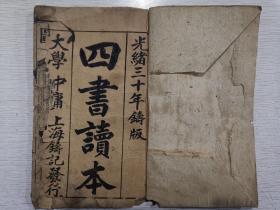 光緒三十年鑄版
四書讀本
大學 中庸 上海鑄記發行